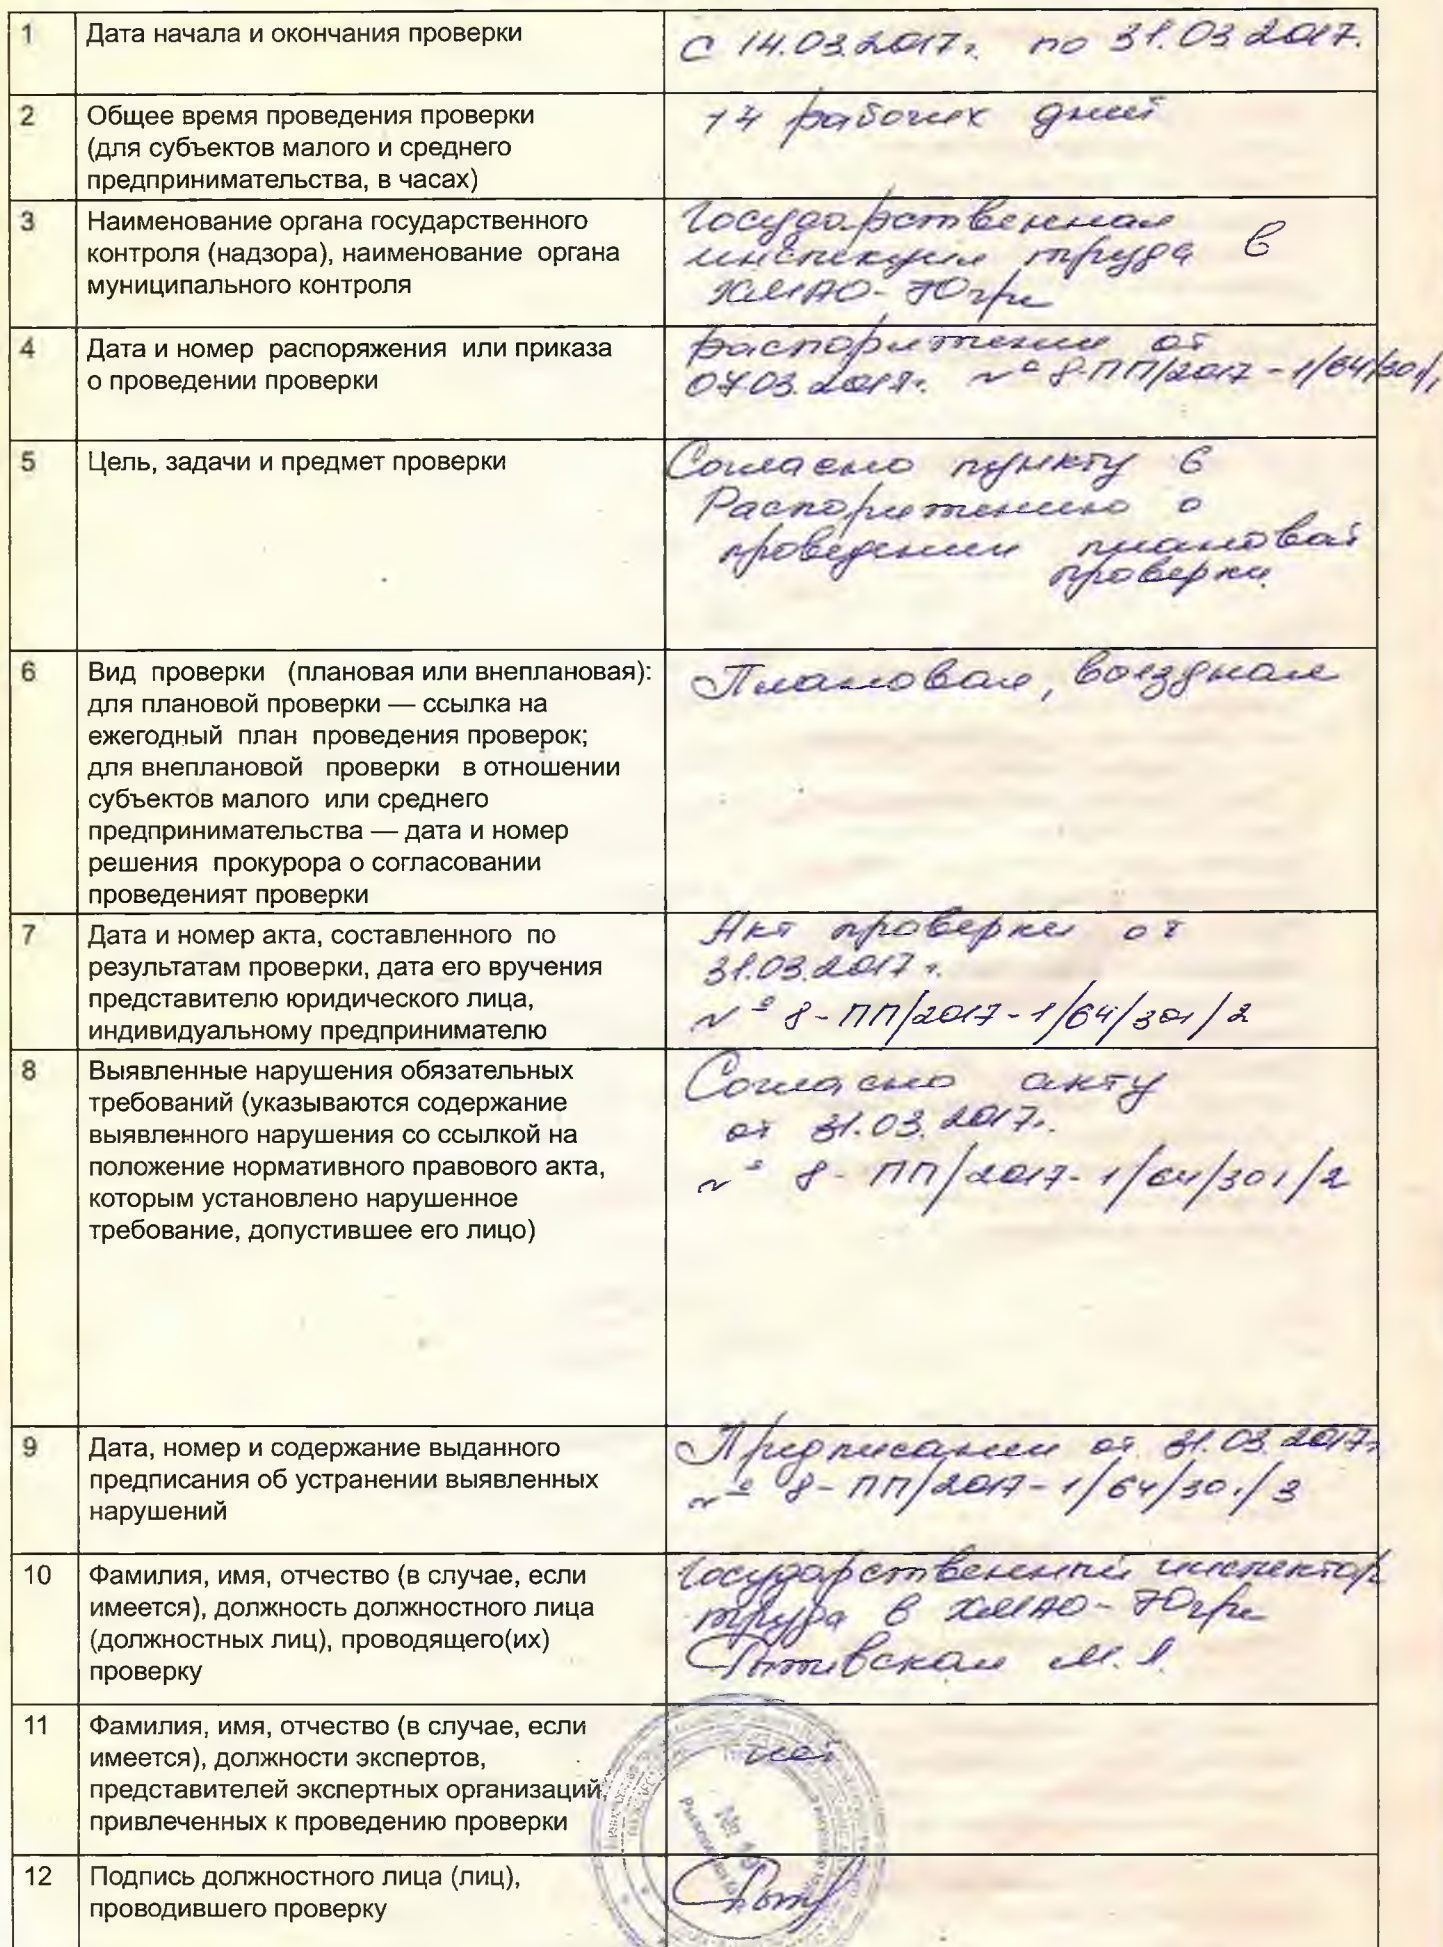 1
Дата начала и окончания проверки
с 14.03.2017г. по 31.03.2017.
2
Общее время проведения проверки
(для субъектов малого и среднего
предпринимательства, в часах)
14 рабочих дней
3
Наименование органа государственного
контроля (надзора), наименование органа
муниципального контроля
Государственная
инспекция труда в
ХМАО-Югре
4
Дата и номер распоряжения или приказа
о проведении проверки
Распоряжение от
07.03.2017г. № 8-ПП/2017-1/64/301/1
5
Цель, задачи и предмет проверки
Согласно пункту 6
Распоряжению о
проведении плановой
проверки
6
Вид проверки (плановая или внеплановая):
для плановой проверки — ссылка на
ежегодный план проведения проверок;
для внеплановой проверки в отношении
субъектов малого или среднего
предпринимательства — дата и номер
решения прокурора о согласовании
проведеният проверки
Плановая, выездная
7
Дата и номер акта, составленного по
результатам проверки, дата его вручения
представителю юридического лица,
индивидуальному предпринимателю
Акт проверки от
31.03.2017г.
№ 8-ПП/2017-1/64/301/2
8
Выявленные нарушения обязательных
требований (указываются содержание
выявленного нарушения со ссылкой на
положение нормативного правового акта,
которым установлено нарушенное
требование, допустившее его лицо)
Согласно акту
от 31.03.2017г.
№ 8-ПП/2017-1/64/301/2
9
Дата, номер и содержание выданного
предписания об устранении выявленных
нарушений
Предписание от 31.03.2017г.
№ 8-ПП/2017-1/64/301/3
10
Фамилия, имя, отчество (в случае, если
имеется), должность должностного лица
(должностных лиц), проводящего(их)
проверку
Государственный инспектор
труда в ХМАО-Югре
11
Фамилия, имя, отчество (в случае, если
имеется), должности экспертов,
представителей экспертных организаций,
привлеченных к проведению проверки
нет
12
Подпись должностного лица (лиц),
проводившего проверку